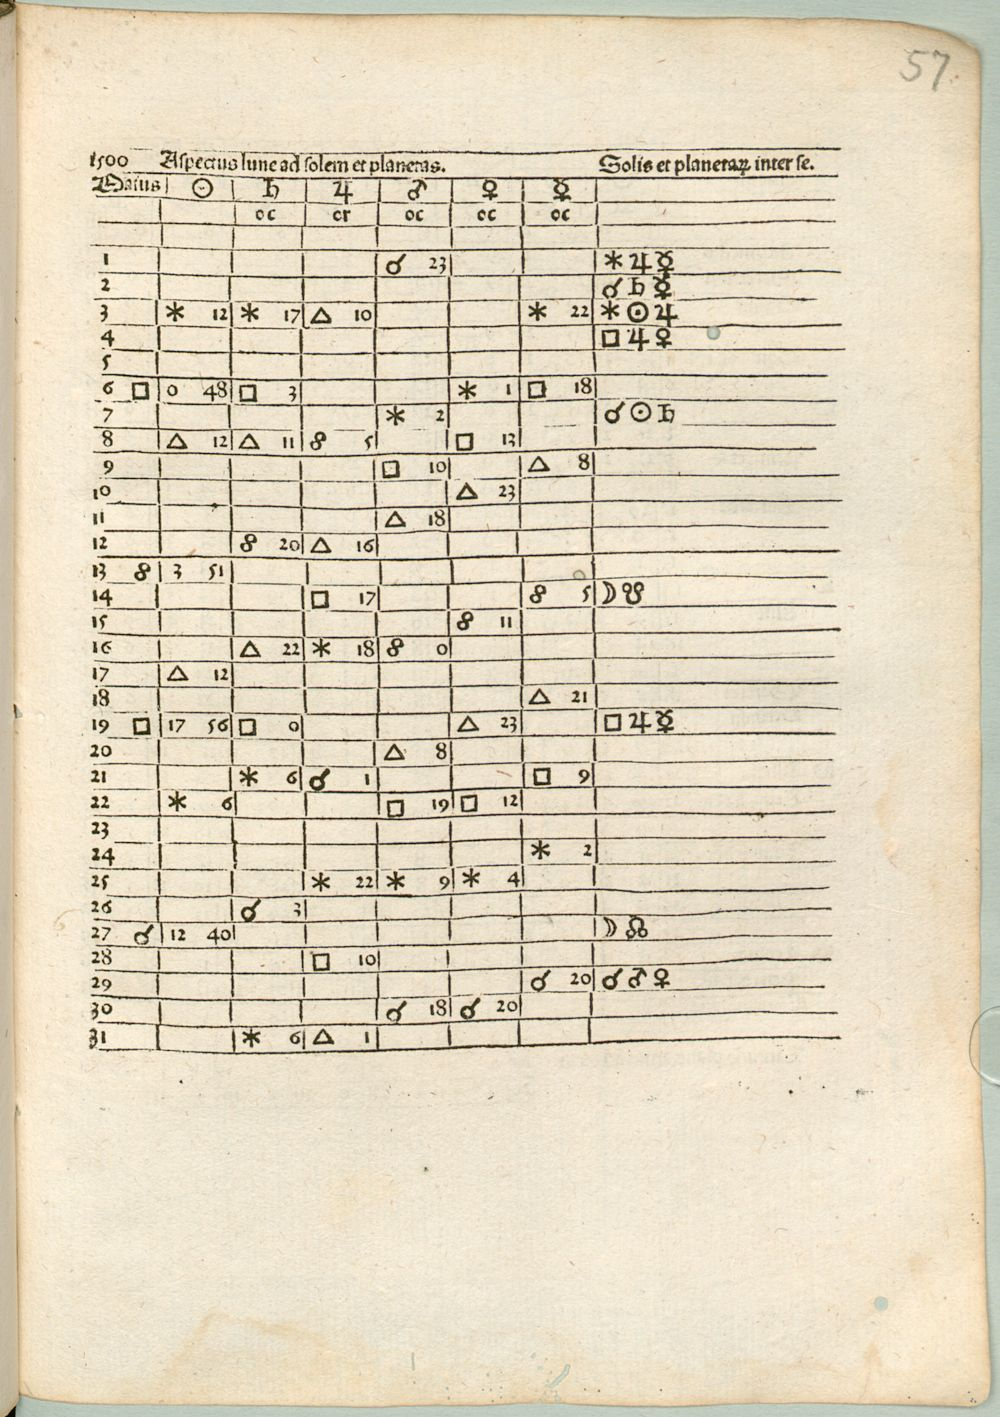 57
1500 Aspectus lune ad solem et planetas. Solis et planetaꝝ inter se.
Maius ☉ ♄ ♃ ♂ ♀ ☿
oc or oc oc oc
1 ☌ 23 ⚹ ♃ ☿
2 ☌ ♄ ☿
3 ⚹ 12 ⚹ 17 △ 10 ⚹ 22 ⚹ ☉ ♃
4 □ ♃ ♀
5
6 □ 0 48 □ 3 ⚹ 1 □ 18
7 ⚹ 2 ☌ ☉ ♄
8 △ 12 △ 11 ☍ 5 □ 13
9 □ 10 △ 8
10 △ 23
11 △ 18
12 ☍ 20 △ 16
13 ☍ 3 51
14 □ 17 ☍ 5 ☽ ☋
15 ☍ 11
16 △ 22 ⚹ 18 ☍ 0
17 △ 12
18 △ 21
19 □ 17 56 □ 0 △ 23 □ ♃ ☿
20 △ 8
21 ⚹ 6 ☌ 1 □ 9
22 ⚹ 6 □ 19 □ 12
23
24 ⚹ 2
25 ⚹ 22 ⚹ 9 ⚹ 4
26 ☌ 3
27 ☌ 12 40 ☽ ☊
28 □ 10
29 ☌ 20 ☌ ♂ ♀
30 ☌ 18 ☌ 20
31 ⚹ 6 △ 1